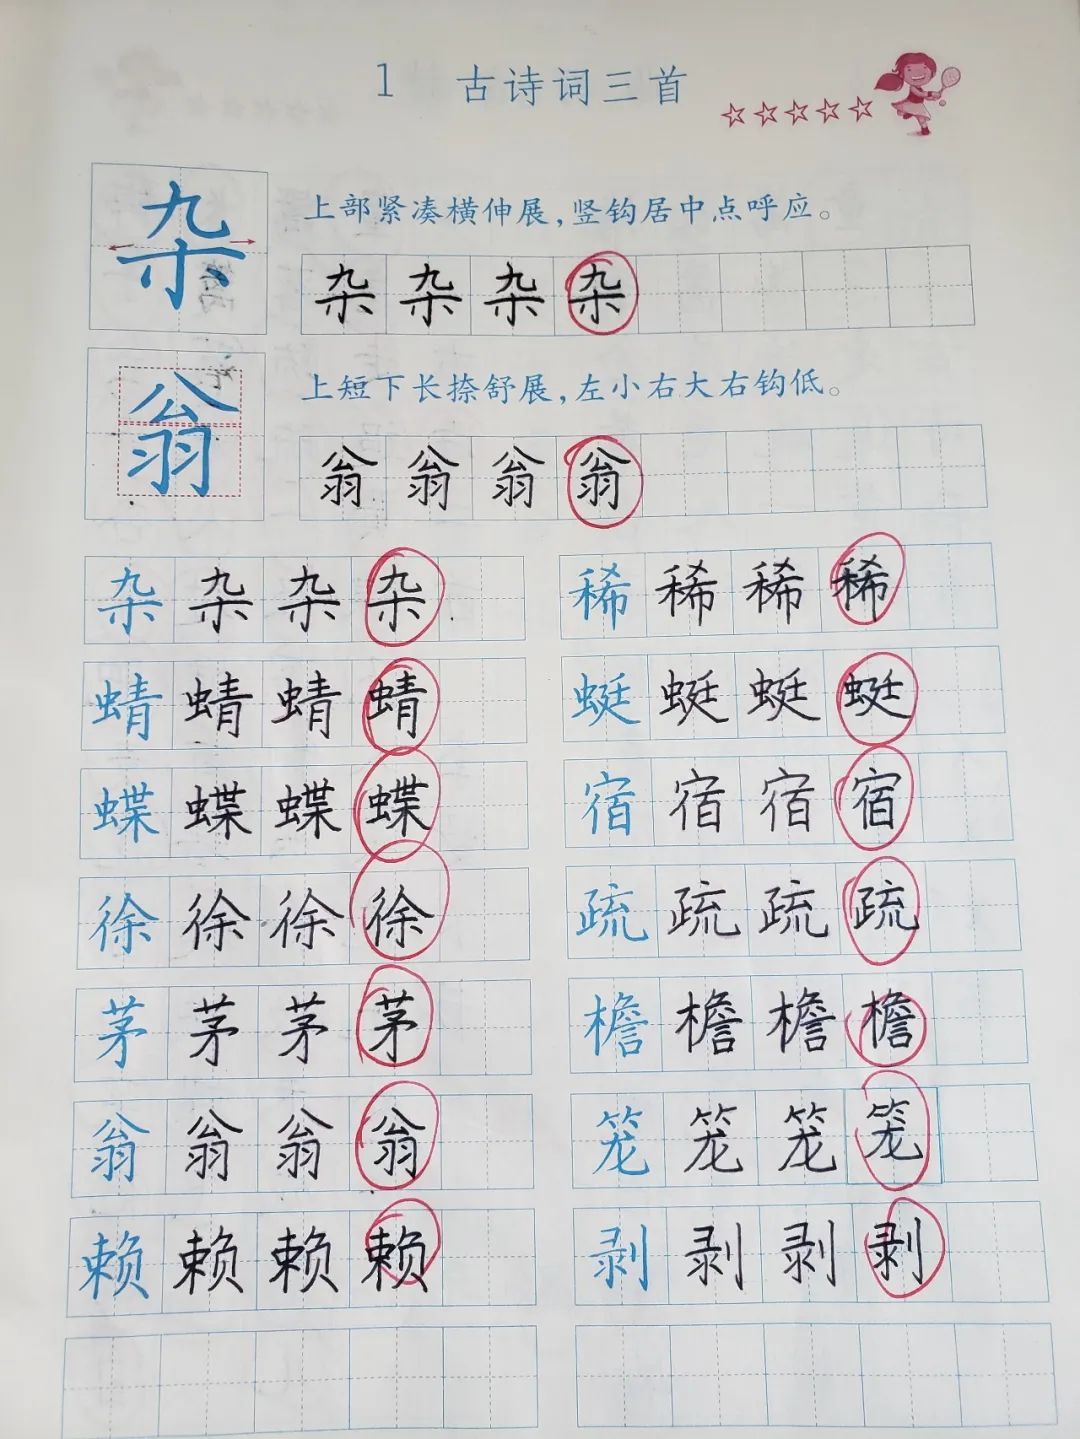 1 古诗词三首
杂 上部紧凑横伸展,竖钩居中点呼应。
杂 杂 杂 杂
翁 上短下长捺舒展,左小右大右钩低。
翁 翁 翁 翁
杂 杂 杂 杂 稀 稀 稀 稀
蜻 蜻 蜻 蜻 蜓 蜓 蜓 蜓
蝶 蝶 蝶 蝶 宿 宿 宿 宿
徐 徐 徐 徐 疏 疏 疏 疏
茅 茅 茅 茅 檐 檐 檐 檐
翁 翁 翁 翁 笼 笼 笼 笼
赖 赖 赖 赖 剥 剥 剥 剥